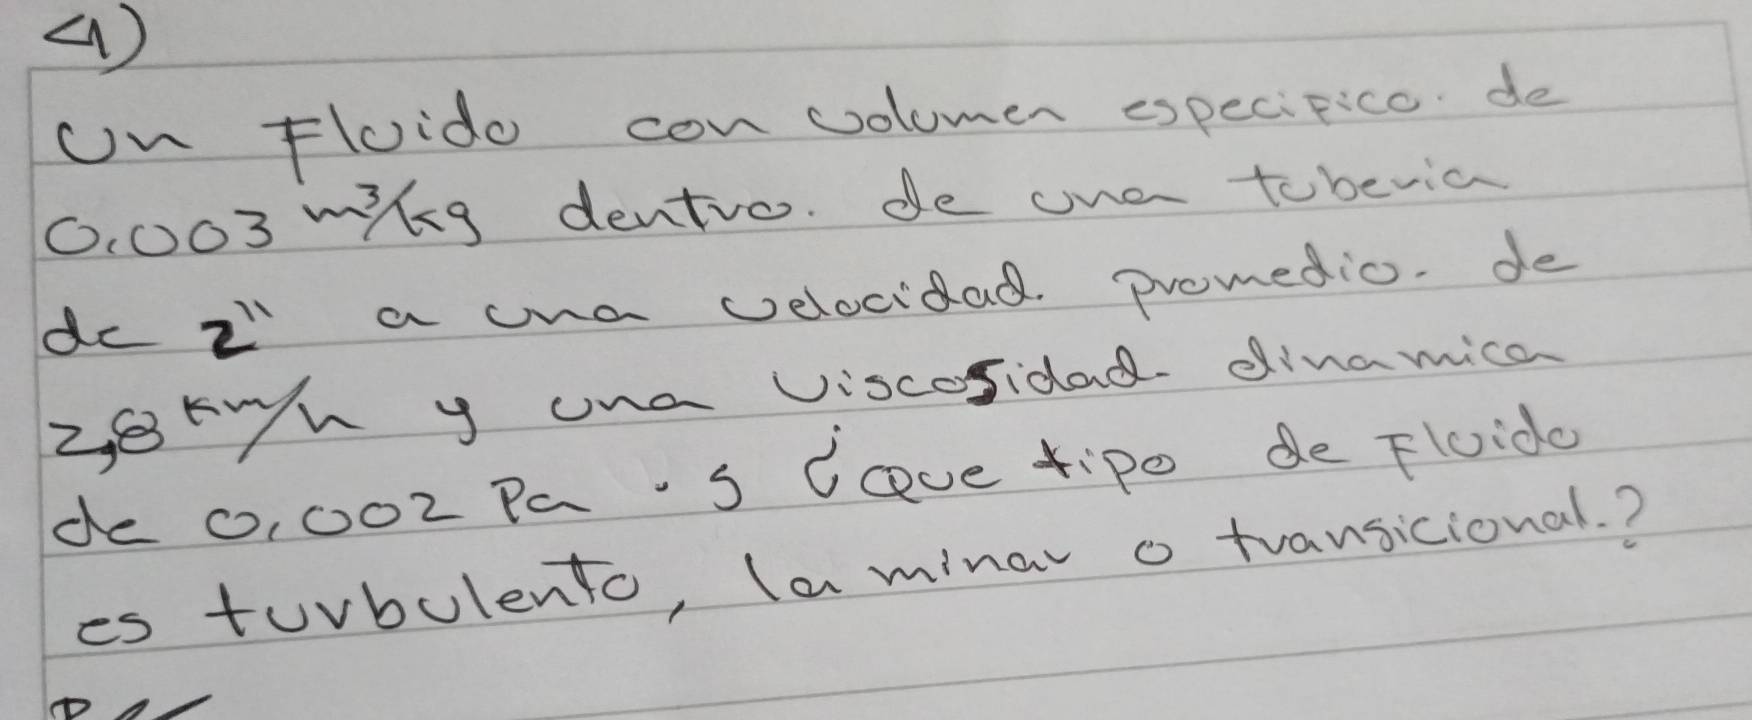 1)
Un Fluido con volumen especifico. de
0.003 m³/kg dentro. de una tuberia
de 2" a una velocidad. promedio. de
2,8 km/h y una viscosidad. dinamica
de 0,002 Pa . s ¿Que tipo de Fluido
es turbulento, laminar o transicional.?